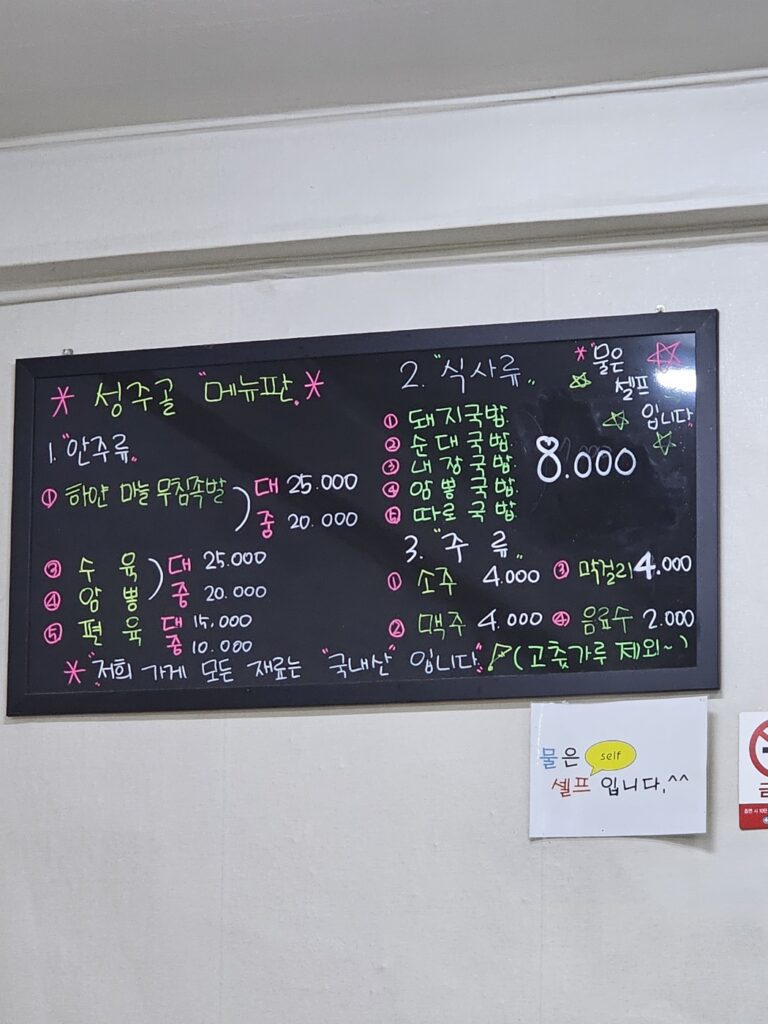 * 성주골 "메뉴판" *
1. "안주류"
① 하얀 마늘 무침족발 대 25.000
중 20.000
③ 수 육 대 25.000
④ 암 뽕 중 20.000
⑤ 편 육 대 15.000
중 10.000
2. "식사류"
① 돼지국밥
② 순대국밥
③ 내장국밥
④ 암뽕국밥
⑤ 따로국밥
8.000
* "물은
셀프
입니다"
3. "주 류"
① 소주 4.000 ③ 막걸리 4.000
② 맥주 4.000 ④ 음료수 2.000
* "저희 가게 모든 재료는 "국내산" 입니다" (고춧가루 제외~)
물은 self
셀프 입니다.^^